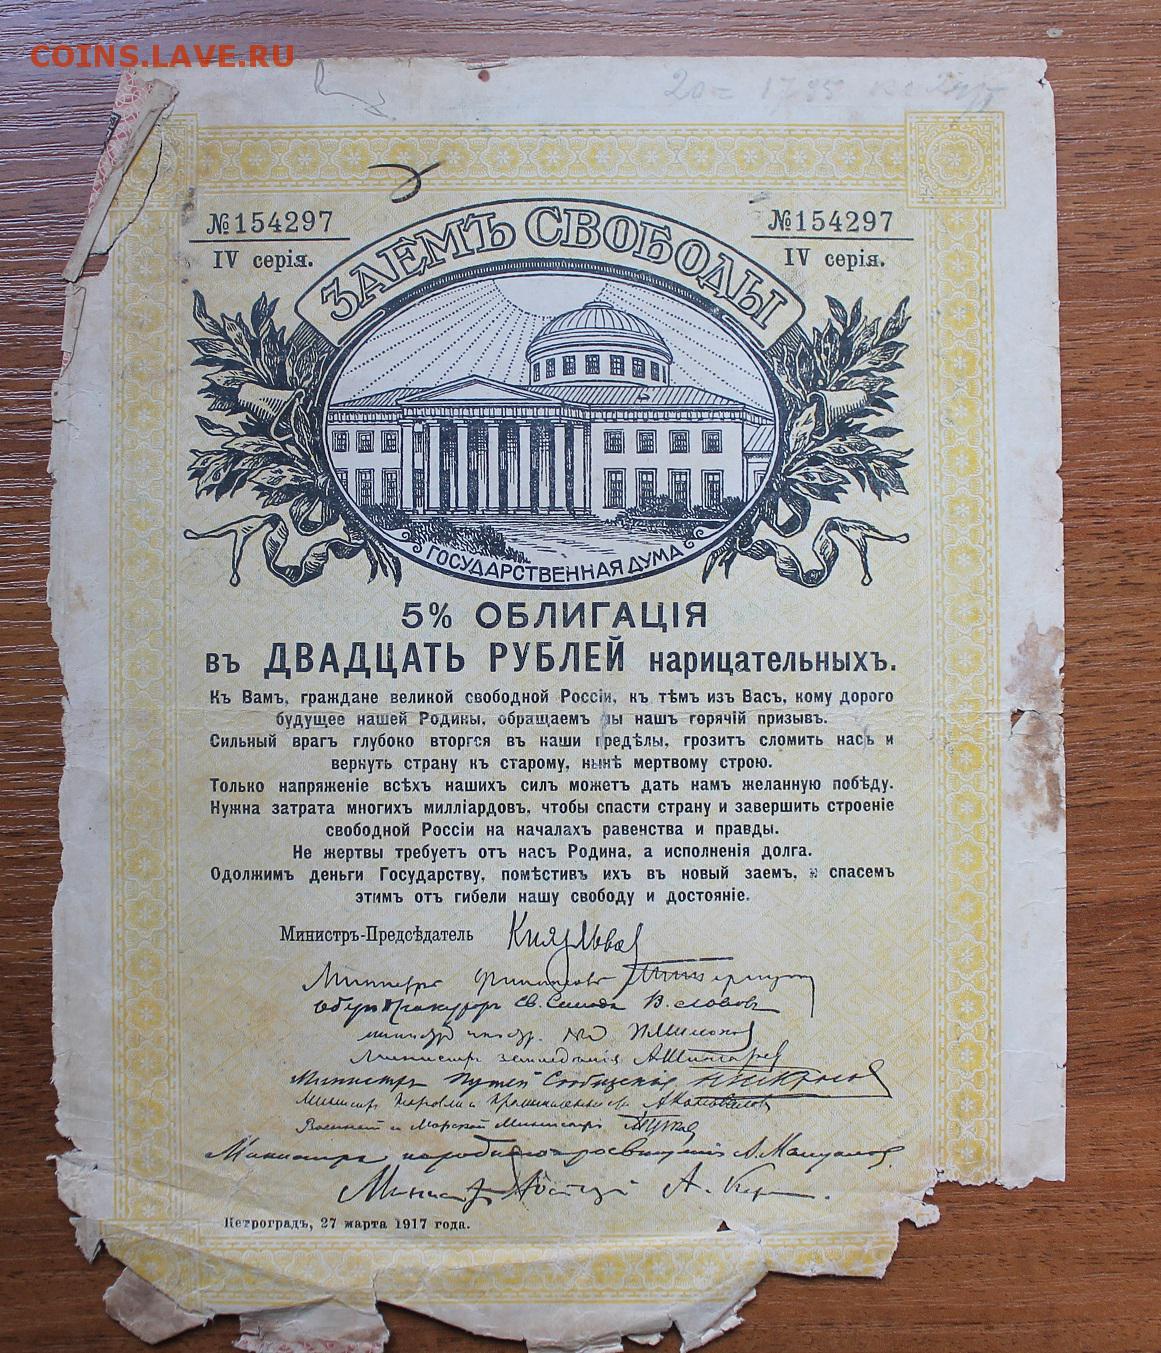 COINS.LAVE.RU
20= 1785
№154297
IV серія.
№154297
IV серія.
ЗАЕМЪ СВОБОДЫ
ГОСУДАРСТВЕННАЯ ДУМА
5% ОБЛИГАЦІЯ
въ ДВАДЦАТЬ РУБЛЕЙ нарицательныхъ.
Къ Вамъ, граждане великой свободной Россіи, къ тѣмъ изъ Васъ, кому дорого
будущее нашей Родины, обращаемъ мы нашъ горячій призывъ.
Сильный врагъ глубоко вторгся въ наши предѣлы, грозитъ сломить насъ и
вернуть страну къ старому, нынѣ мертвому строю.
Только напряженіе всѣхъ нашихъ силъ можетъ дать намъ желанную побѣду.
Нужна затрата многихъ милліардовъ, чтобы спасти страну и завершить строеніе
свободной Россіи на началахъ равенства и правды.
Не жертвы требуетъ отъ насъ Родина, а исполненія долга.
Одолжимъ деньги Государству, помѣстивъ ихъ въ новый заемъ, и спасемъ
этимъ отъ гибели нашу свободу и достояніе.
Министръ-Предсѣдатель Князь Львов
Министръ Финансовъ
Оберъ Прокуроръ Св. Синода В. Львовъ
Министр иностр. П. Милюков
Министръ земледѣлія А. Шингарев
Министръ Путей Сообщенія Н. Некрасов
Министръ Торговли и Промышленности А. Коновалов
Военный и Морской Министръ А. Гучков
Министръ народнаго просвѣщенія А. Мануилов.
Министръ Юстиціи А. Керенскій.
Петроградъ, 27 марта 1917 года.